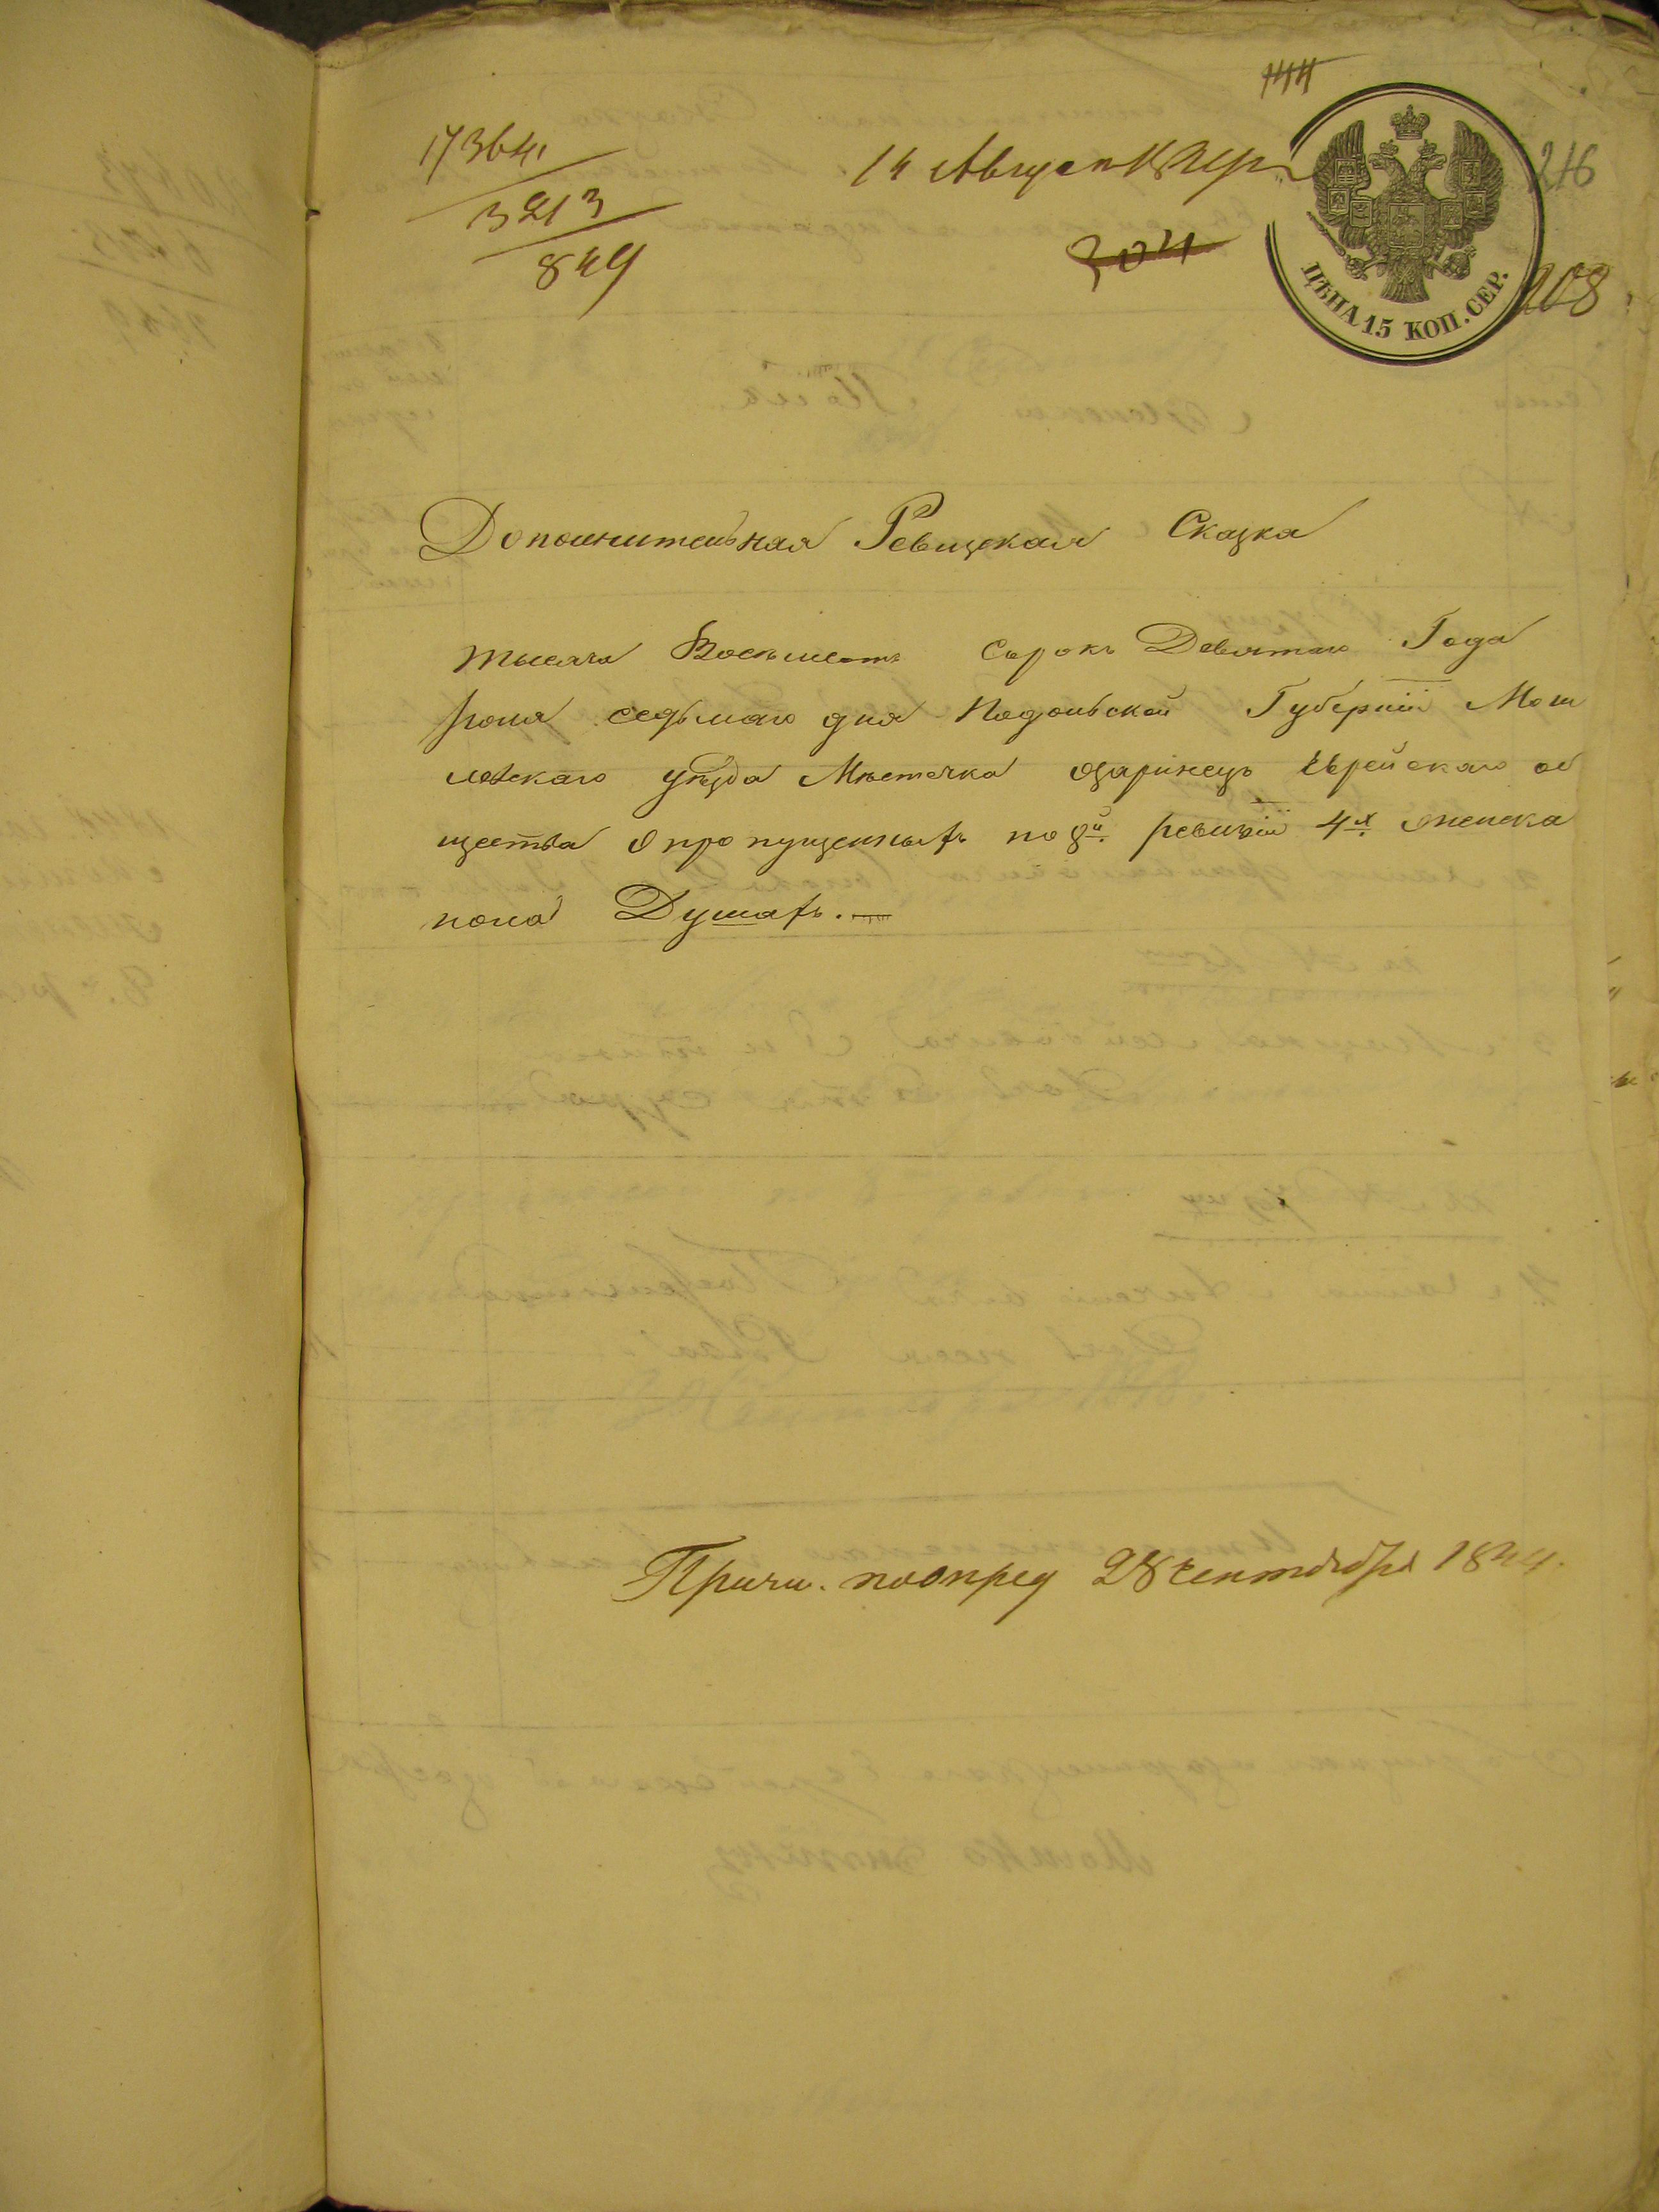 144
17364
3213
849
14 Августа
304
216
208
ЦѢНА 15 КОП. СЕР.
Дополнительная Ревизская Сказка
тысяча Восемьсотъ сорокъ Девятаго Года
Іюня седьмаго дня Подольской Губерніи Моги
левскаго уѣзда Мѣстечка Озаринецъ Еврейскаго об
щества о пропущенныхъ по 8й ревизіи 4х женска
пола Душахъ.
Причи. по опред 28 сентября 1844.